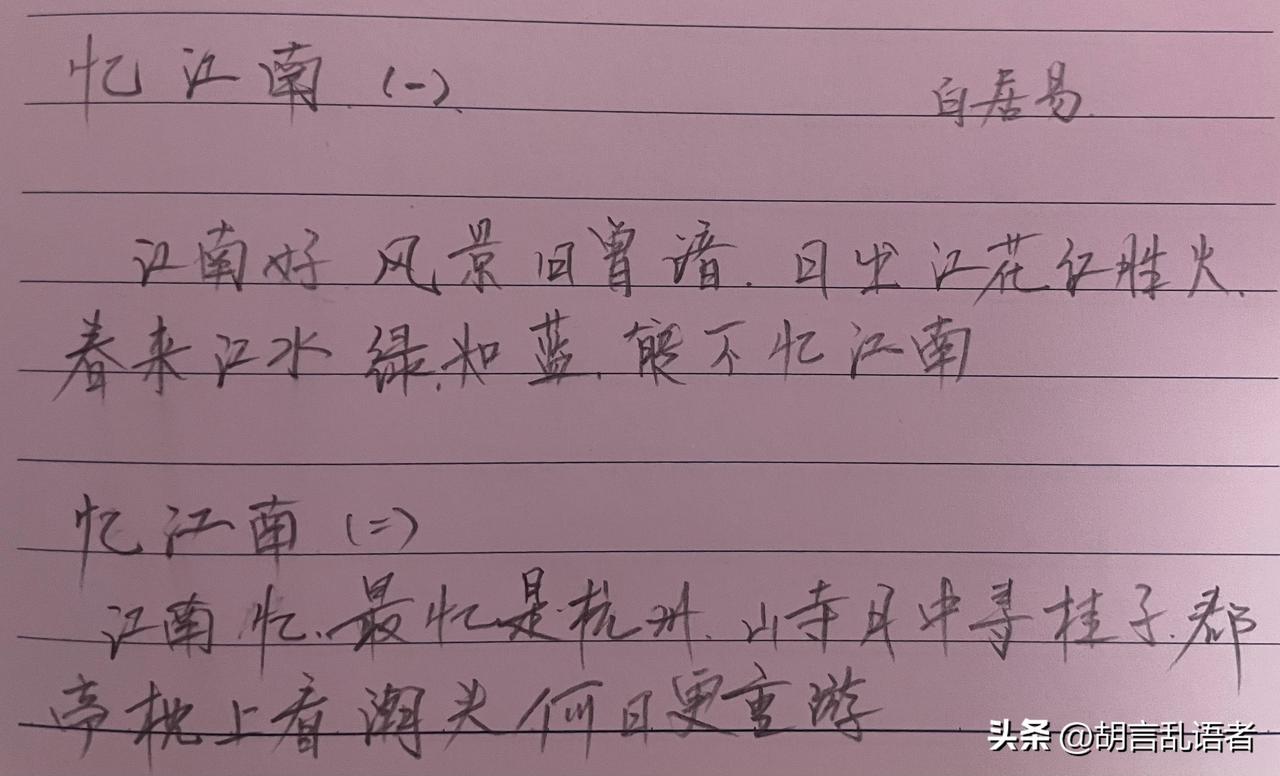 忆江南（一）
白居易
江南好 风景旧曾谙.日出江花红胜火.
春来江水绿如蓝.能不忆江南
忆江南（二）
江南忆.最忆是杭州.山寺月中寻桂子.郡
亭枕上看潮头何日更重游
头条 @胡言乱语者